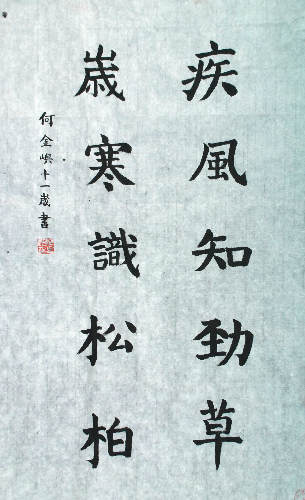 疾風知勁草
歲寒識松柏
何全嶼十一歲書